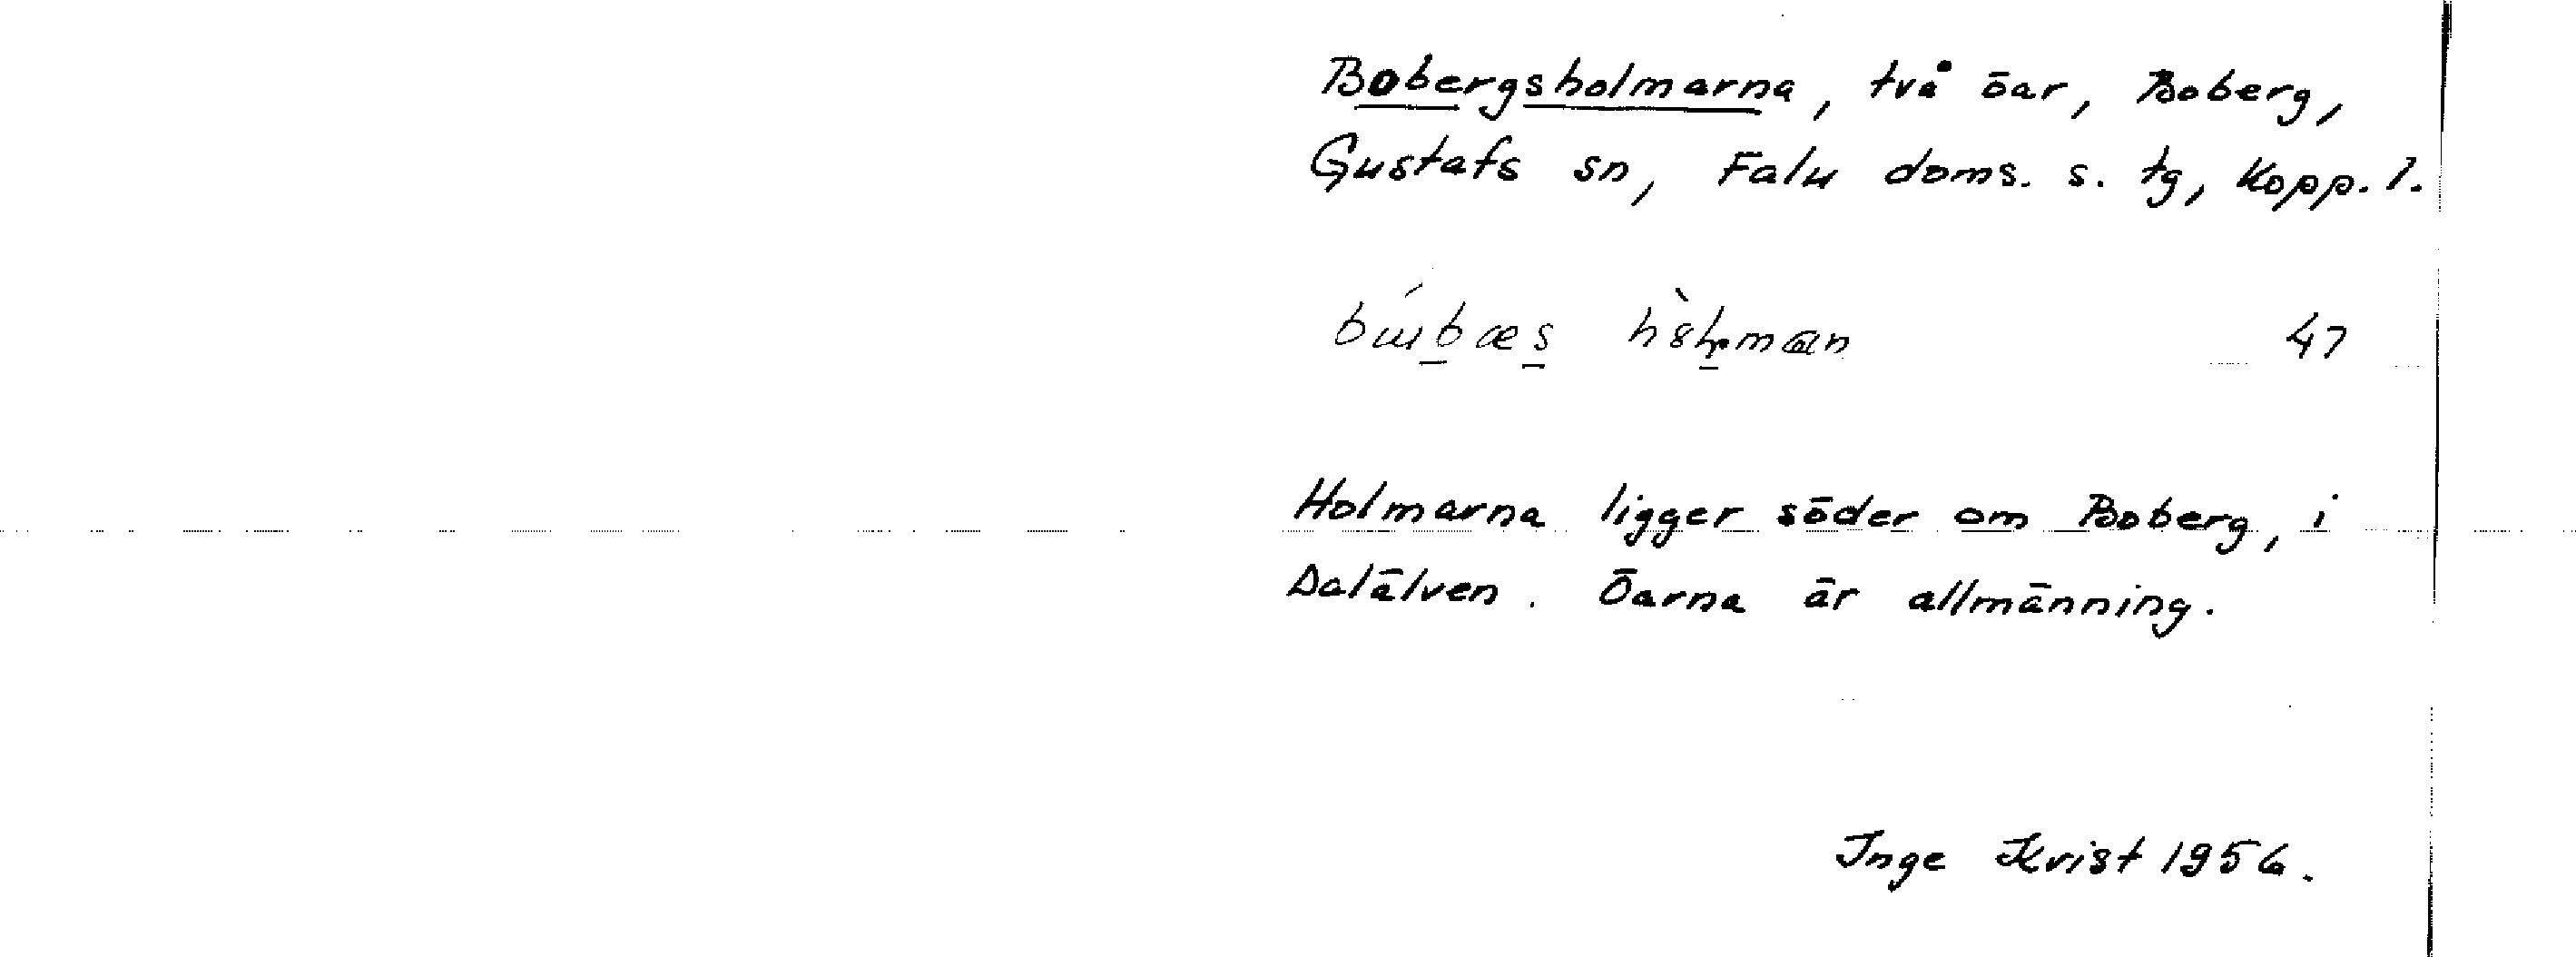 Bobergsholmarna, två öar, Boberg,
Gustafs sn, Falu doms. s. tg, Kopp. l.
47
Holmarna ligger söder om Boberg, i
Dalälven. Öarna är allmänning.
Inge Kvist 1956.